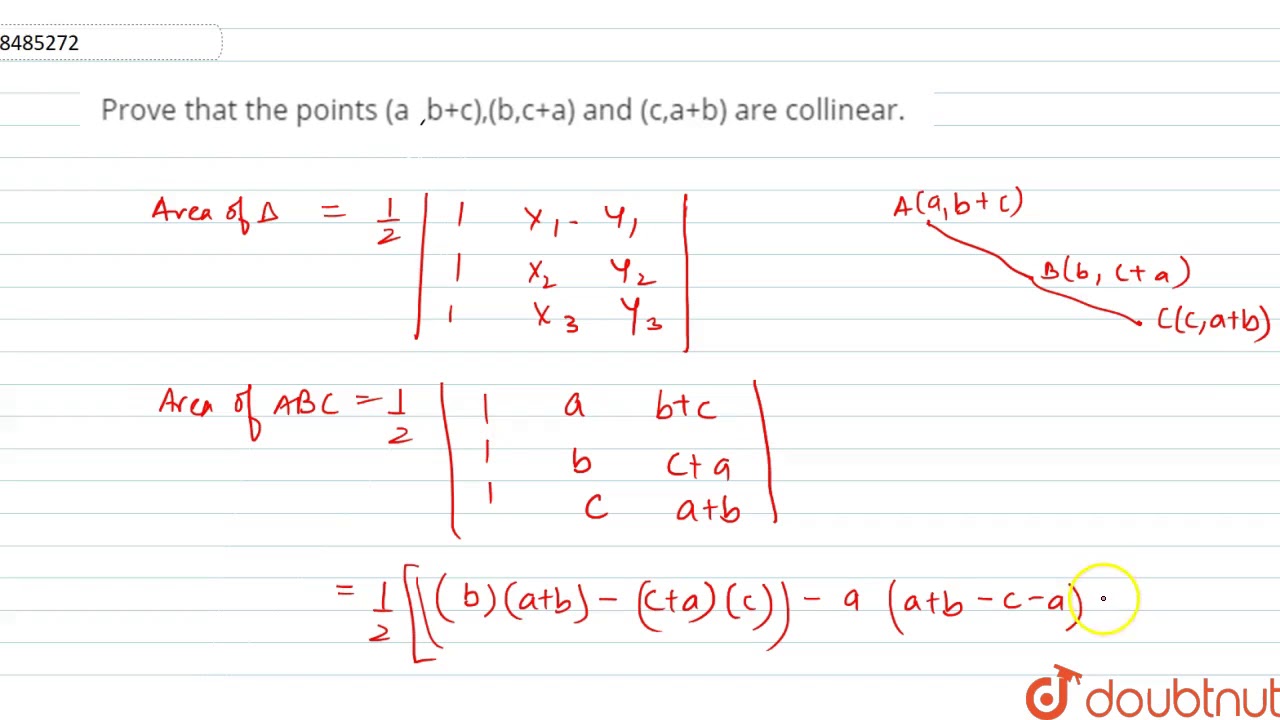 8485272
Prove that the points (a ,b+c),(b,c+a) and (c,a+b) are collinear.
Area of Δ = 1/2 | 1 x₁ - y₁ |
1 x₂ y₂
1 x₃ y₃
A(a, b+c)
B(b, c+a)
C(c, a+b)
Area of ABC = 1/2 | 1 a b+c |
1 b c+a
1 c a+b
= 1/2 [((b)(a+b) - (c+a)(c)) - a (a+b-c-a)
doubtnut